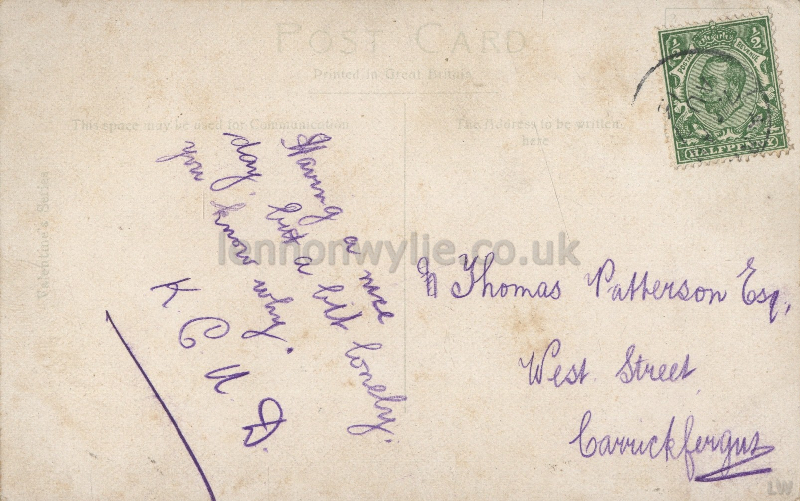 POST CARD
Printed in Great Britain
This space may be used for Communication
The Address to be written
here
½ ½
HALFPENNY
Having a nice
day, but a bit lonely.
you know why.
K C U D.
Thomas Patterson Esq,
West Street
Carrickfergus
lennonwylie.co.uk
LW